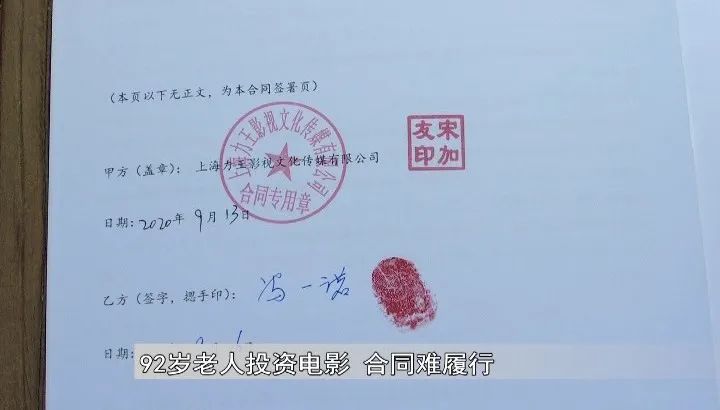 (本页以下无正文，为本合同签署页)
上海力主影视文化传媒有限公司
合同专用章
宋加
友印
甲方（盖章）：上海力主影视文化传媒有限公司
日期：2020年9月13日
乙方（签字，摁手印）：冯一诺
日期：
92岁老人投资电影 合同难履行